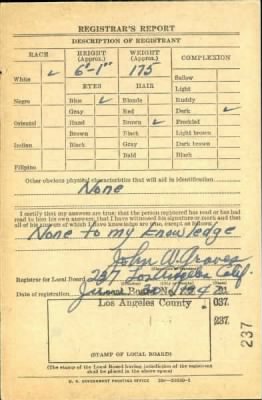 REGISTRAR'S REPORT
DESCRIPTION OF REGISTRANT
RACE HEIGHT (Approx.) WEIGHT (Approx.) COMPLEXION
White ✓ 6'-1" 175 Sallow
EYES HAIR Light
Negro Blue ✓ Blonde Ruddy
Gray Red Dark ✓
Oriental Hazel Brown ✓ Freckled
Brown Black Light brown
Indian Black Gray Dark brown
Bald Black
Filipino
Other obvious physical characteristics that will aid in identification
None
I certify that my answers are true; that the person registered has read or has had
read to him his own answers; that I have witnessed his signature or mark and that
all of his answers of which I have knowledge are true, except as follows:
None to my knowledge
John W. Graves
Registrar for Local Board 237 Los Angeles Calif.
Date of registration
Los Angeles County 037
237
237
(STAMP OF LOCAL BOARD)
(The stamp of the Local Board having jurisdiction of the registrant
shall be placed in the above space)
U. S. GOVERNMENT PRINTING OFFICE